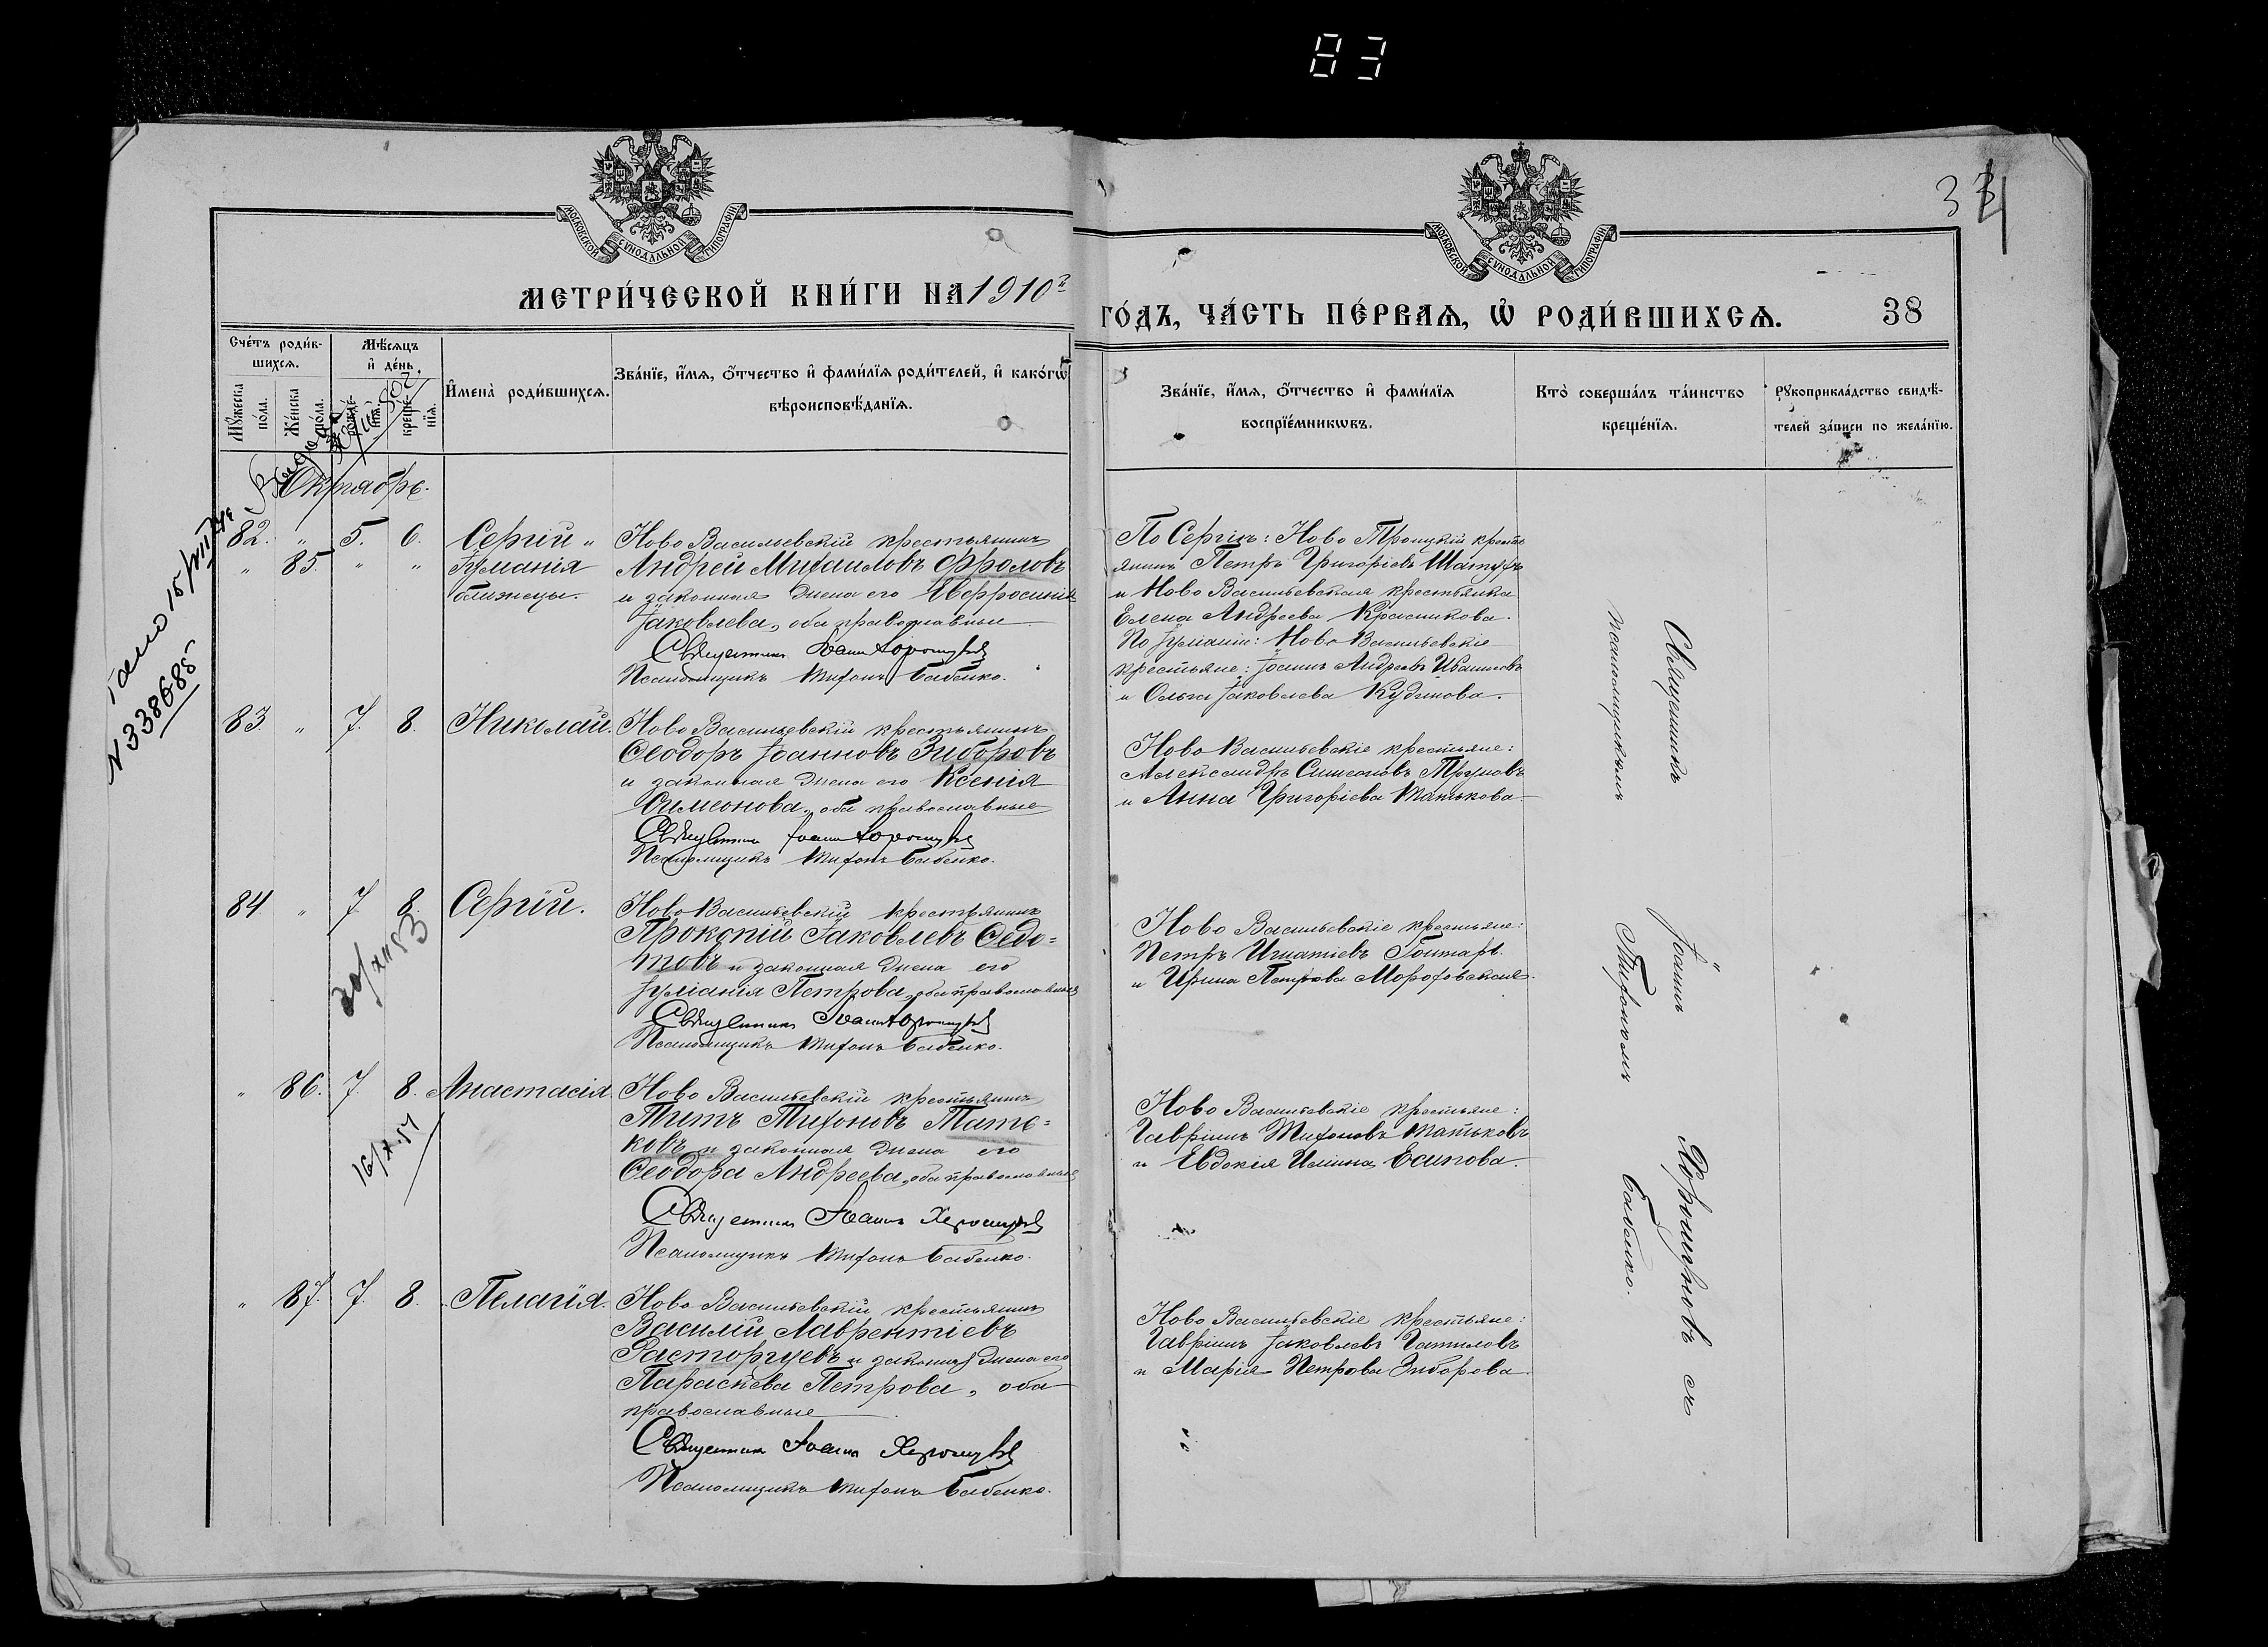 83
34
МОСКОВСКОЙ СѴНОДАЛЬНОЙ ТИПОГРАФІИ
МОСКОВСКОЙ СѴНОДАЛЬНОЙ ТИПОГРАФІИ
МЕТРИ́ЧЕСКОЙ КНИ́ГИ НА 1910 г
ГО́ДЪ, ЧА́СТЬ ПЕ́РВАѦ, Ѡ҆ РОДИ́ВШИХСѦ. 38
Сче́тъ роди́в-
шихсѧ.
Мꙋ́жеска по́ла.
Же́нска по́ла.
Мѣ́сѧцъ
и҆ де́нь.
рожде́-нїѧ.
креще́-нїѧ.
И҆мена̀ роди́вшихсѧ.
Зва́нїе, и҆́мѧ, ѻ҆́тчество и҆ фами́лїѧ роди́телей, и҆ како́гѡ
вѣроисповѣ́данїѧ.
Зва́нїе, и҆́мѧ, ѻ҆́тчество и҆ фами́лїѧ
воспрїе́мникѡвъ.
Кто̀ соверша́лъ та́инство
креще́нїѧ.
Рꙋкоприкла́дство свидѣ́-
телей за́писи по жела́нїю.
Октябрь.
N 338685
82. " 5. 6. Сергій "
" 85. " " Іуліанія
близнецы.
Ново Васильевскій крестьянинъ
Андрей Михаиловъ Фроловъ
и законная жена его Евфросинія
Іаковлева, оба православные
Священникъ Іоаннъ Хорошуновъ
Псаломщикъ Тихонъ Бабенко.
По Сергію: Ново Троицкій кресть
янинъ Петръ Григоріевъ
и Ново Васильевская крестьянка
Елена Андреева Красникова.
По Іуліаніи: Ново Васильевскіе
крестьяне: Іоаннъ Андреевъ
и Ольга Іаковлева Кудинова.
83. " 7. 8. Николай.
Ново Васильевскій крестьянинъ
Ѳеодоръ Іоанновъ Зиборовъ
и законная жена его Ксенія
Симеонова, оба православные
Священникъ Іоаннъ Хорошуновъ
Псаломщикъ Тихонъ Бабенко.
Ново Васильевскіе крестьяне:
Александръ Симеоновъ Труновъ
и Анна Григоріева Татькова.
84. " 7. 8. Сергій.
20/XII 53
Ново Васильевскій крестьянинъ
Прокопій Іаковлевъ Ѳедо=
товъ и законная жена его
Іуліанія Петрова, оба православные
Священникъ Іоаннъ Хорошуновъ
Псаломщикъ Тихонъ Бабенко.
Ново Васильевскіе крестьяне:
Петръ Игнатіевъ Гонтарь
и Ирина Петрова Мороховская.
" 86. 7. 8. Анастасія.
16/X 51
Ново Васильевскій крестьянинъ
Титъ Тихоновъ Тать=
ковъ и законная жена его
Ѳеодора Андреева, оба православные
Священникъ Іоаннъ Хорошуновъ
Псаломщикъ Тихонъ Бабенко.
Ново Васильевскіе крестьяне:
Гавріилъ Тихоновъ Татьковъ
и Евдокія Иліина Есипова.
" 87. 7. 8. Пелагія.
Ново Васильевскій крестьянинъ
Василій Лаврентіевъ
Расторгуевъ и законная жена его
Параскева Петрова, оба
православные
Священникъ Іоаннъ Хорошуновъ
Псаломщикъ Тихонъ Бабенко.
Ново Васильевскіе крестьяне:
Гавріилъ Іаковлевъ Гатиловъ
и Марія Петрова Зиборова.
Священникъ Іоаннъ Хорошуновъ съ
псаломщикомъ Тихономъ Бабенко.